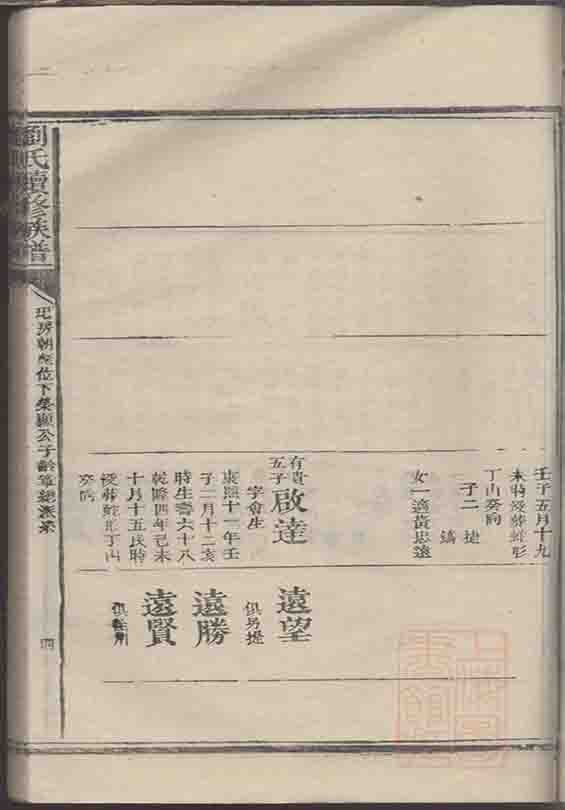 壬子五月十九
未時歿葬蛇形
丁山癸向
子二 捷
女一適黃忠遠
有貴五子
啟達
字會生
康熙十一年壬
子二月十二亥
時生壽六十八
乾隆四年己未
十月十五戌時
歿葬蛇形丁山
癸向
遠望
俱另提
遠勝
遠賢
俱
劉氏續修族譜
房朝 位下榮顯公子齡 總派系
四